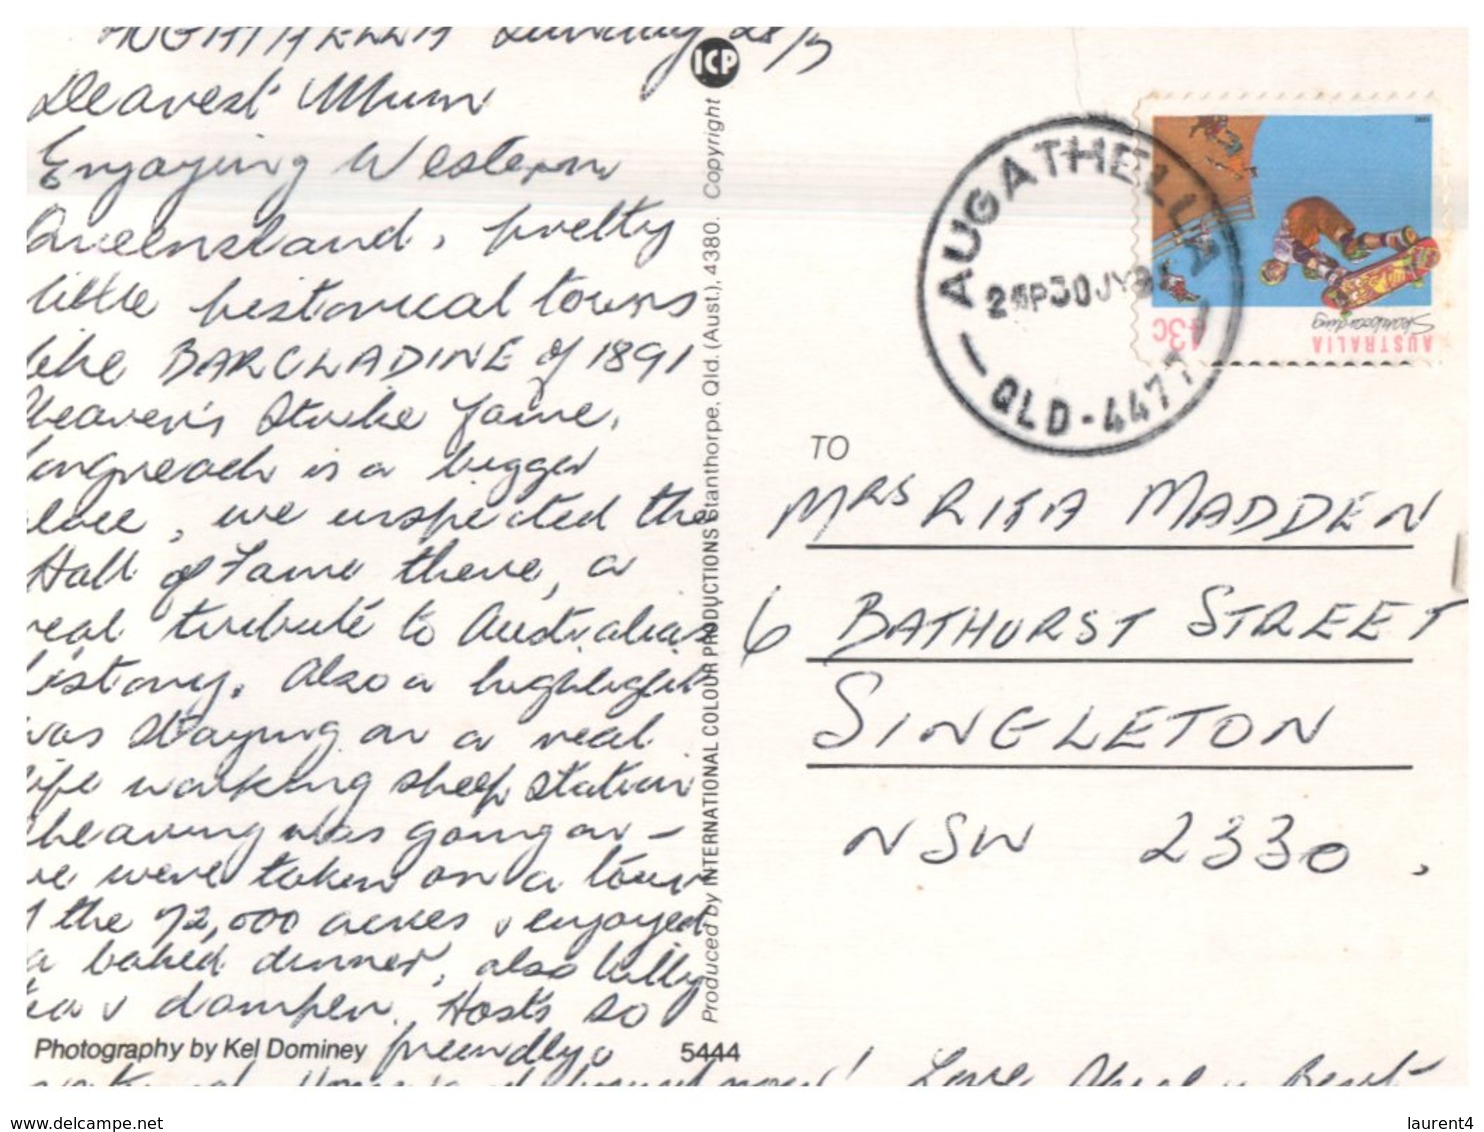 AUGATHELLA Sunday 28/7
Dearest Mum
Enjoying Western
Queensland, pretty
little historical towns
like BARCLADINE of 1891
Shearer's Strike fame,
Longreach is a bigger
place, we inspected the
Hall of Fame there, a
real tribute to Australias
history. Also a highlight
was staying on a real
life working sheep station
shearing was going on -
we were taken on a tour
of the 72,000 acres & enjoyed
a baked dinner, also billy
tea & damper. Hosts so
friendly.
Homeward bound now! Love
Photography by Kel Dominey
5444
ICP
Produced by INTERNATIONAL COLOUR PRODUCTIONS Stanthorpe, Qld. (Aust.), 4380. Copyright
AUGATHELLA
30 JY
QLD-4477
AUSTRALIA
43c
Skateboarding
TO
MRS RITA MADDEN
6 BATHURST STREET
SINGLETON
NSW 2330.
www.delcampe.net
laurent4